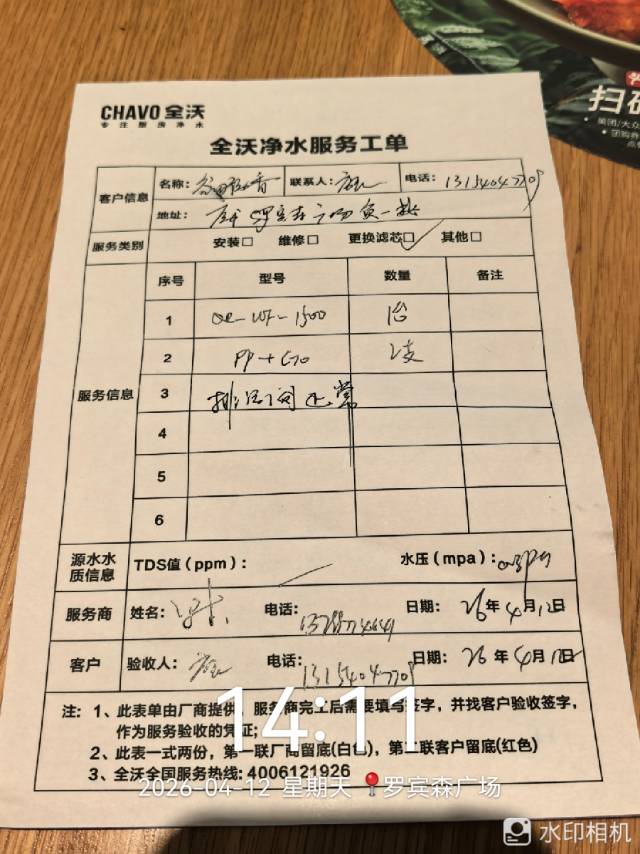 扫码
美团/大众
团购券
点餐
CHAVO 全沃
专注厨房净水
全沃净水服务工单
客户信息 名称: 联系人: 电话: 13154047709
地址: 罗宾森广场负一楼
服务类别 安装□ 维修□ 更换滤芯□✓ 其他□
服务信息 序号 型号 数量 备注
1 QE-WF-1500 1台
2 PP+C70 2支
3 排污阀正常
4
5
6
源水水质信息 TDS值(ppm): 水压(mpa):
服务商 姓名: 电话: 日期: 26年4月12日
客户 验收人: 电话: 13154047709 日期: 26年4月12日
注: 1、此表单由厂商提供, 服务商完工后需要填写签字, 并找客户验收签字,
作为服务验收的凭证;
2、此表一式两份, 第一联厂商留底(白色), 第二联客户留底(红色)
3、全沃全国服务热线: 4006121926
14:11
2026-04-12 星期天 罗宾森广场
水印相机